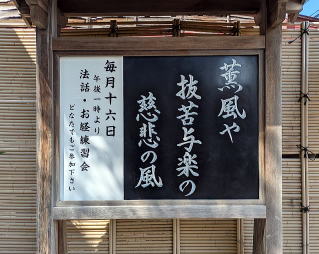 薫風や
抜苦与楽の
慈悲の風
毎月十六日
午後一時より
法話・お経練習会
どなたでもご参加下さい